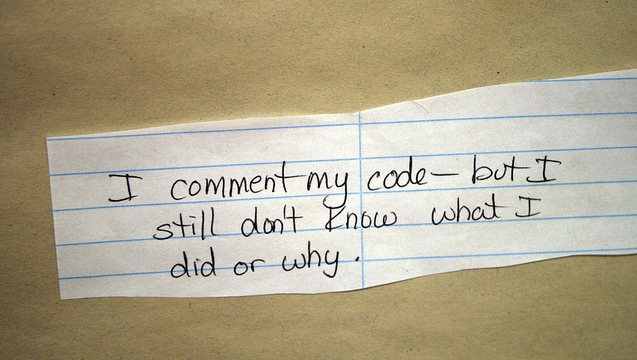 I comment my code – but I
still don't know what I
did or why.